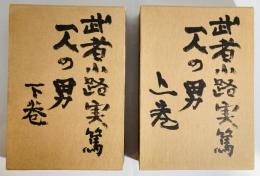 武者小路実篤
一人の男
下巻
武者小路実篤
一人の男
上巻